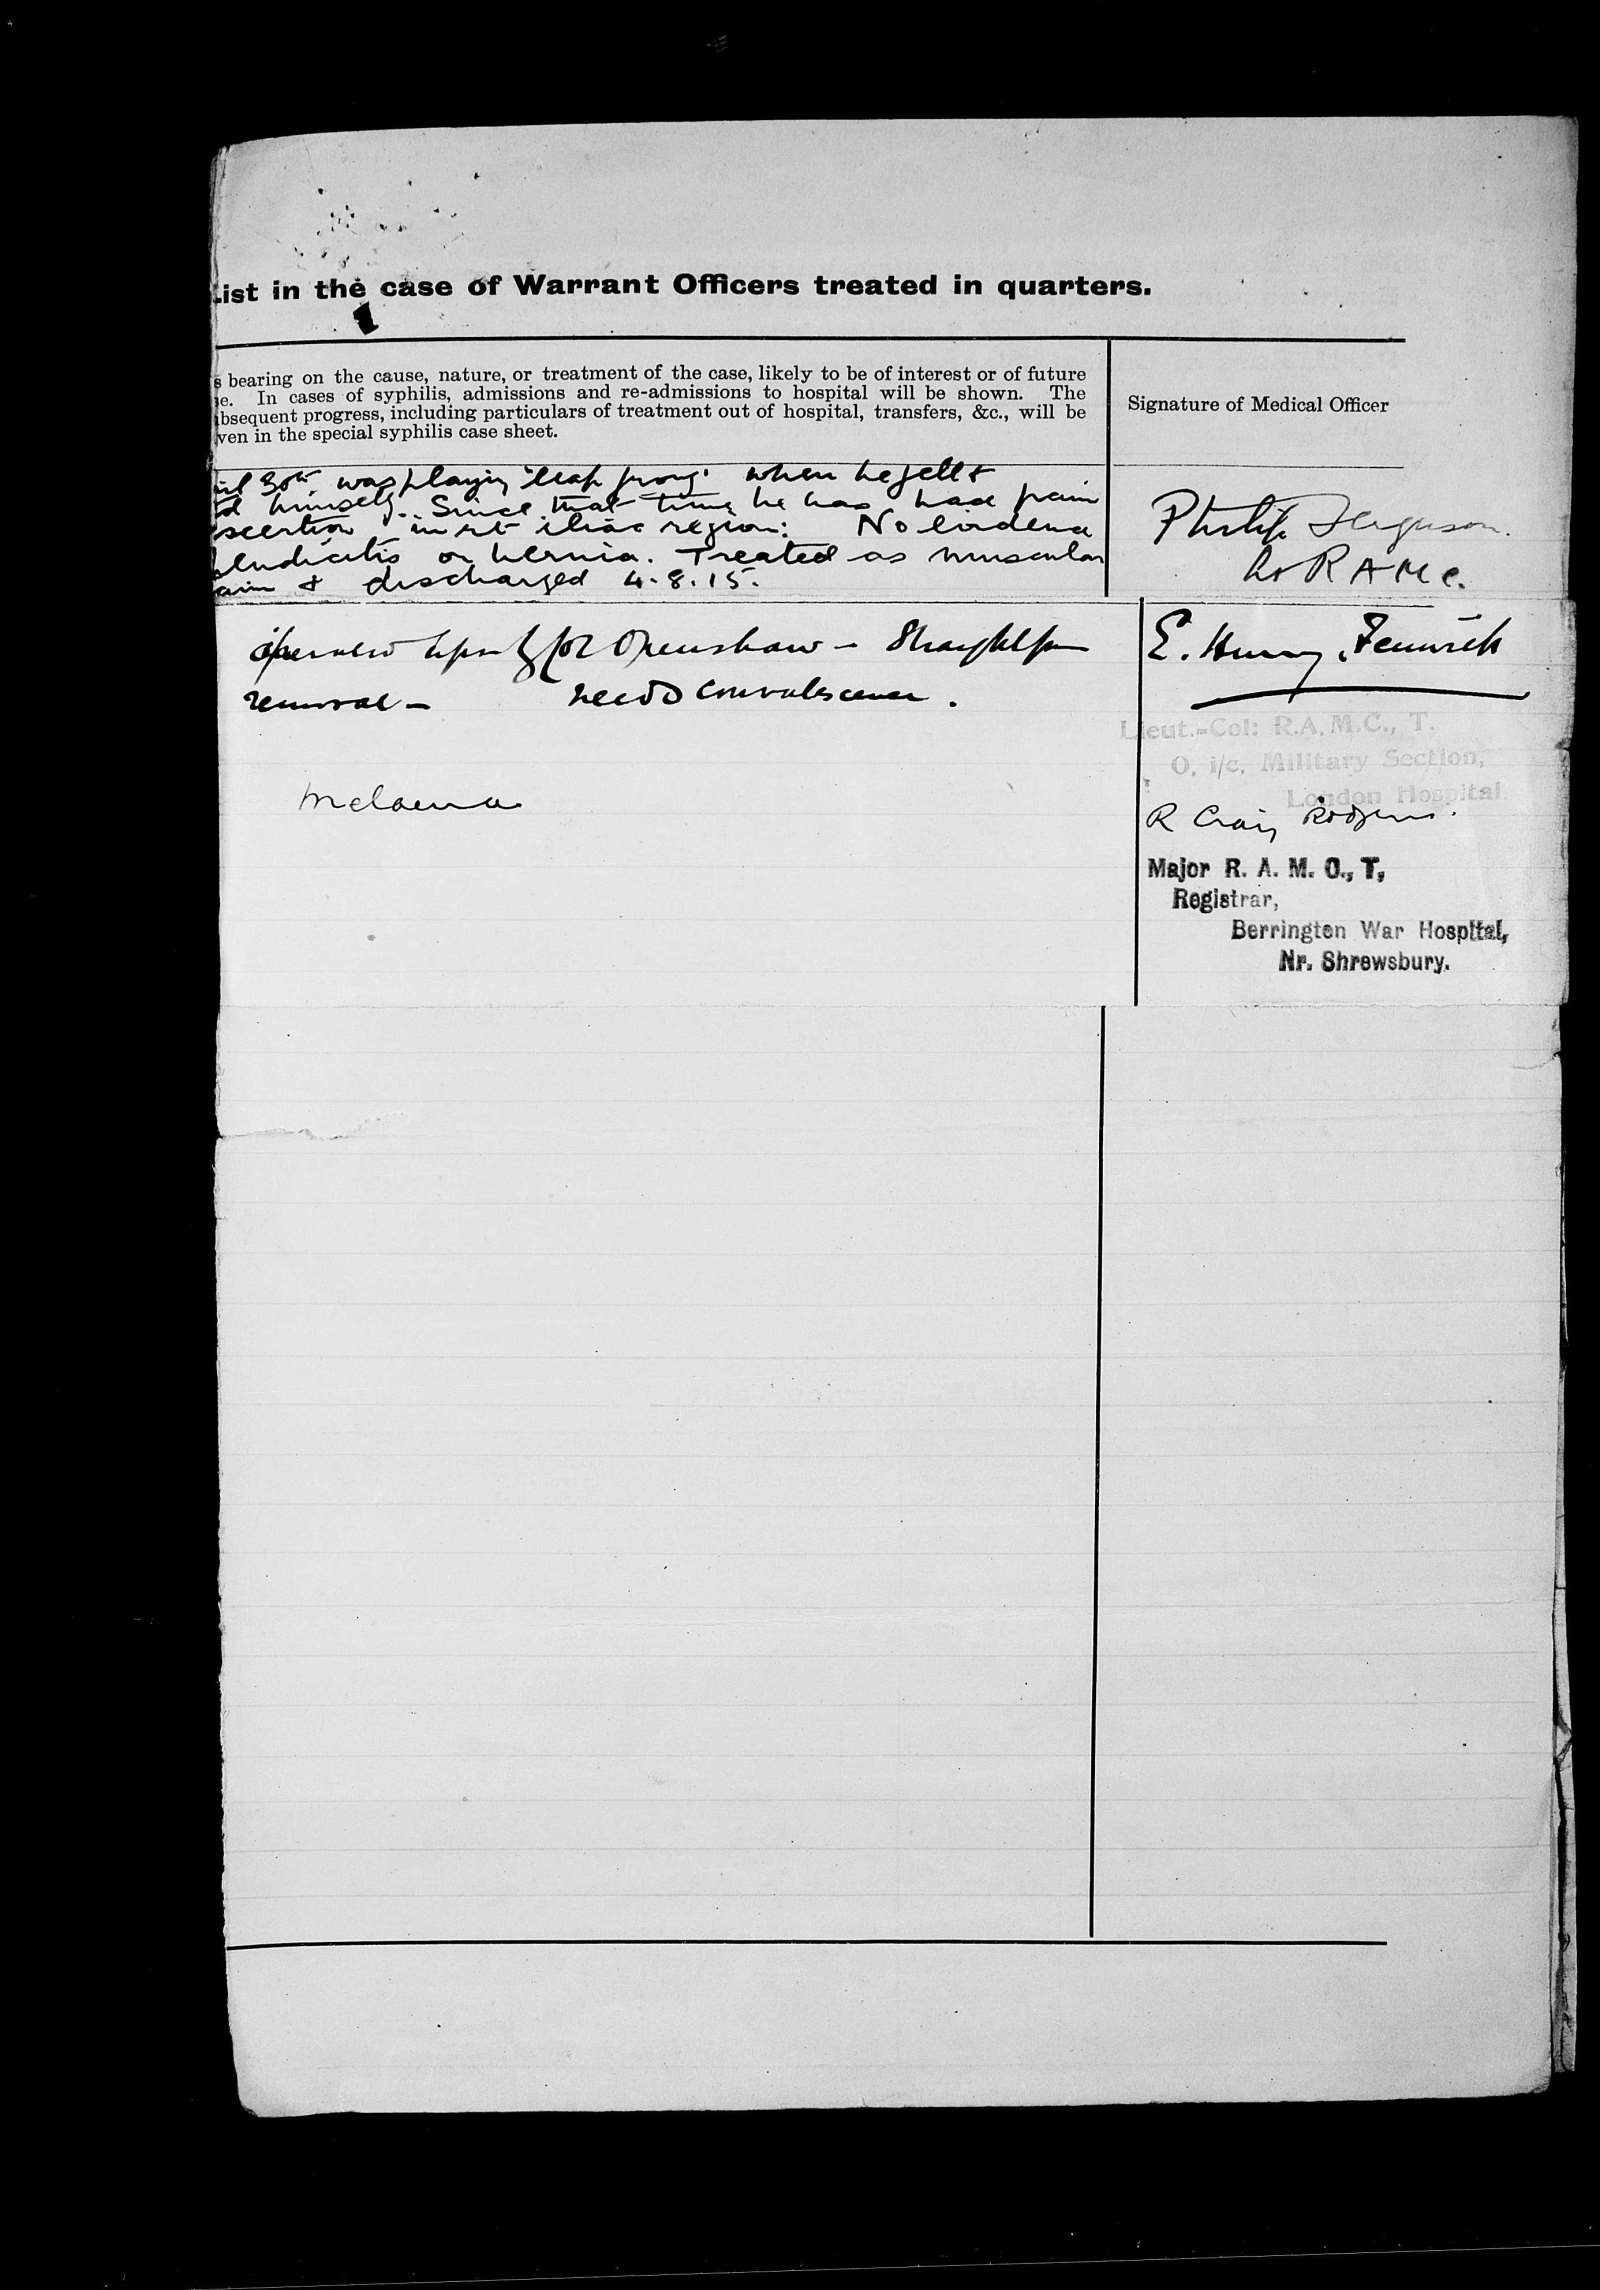 List in the case of Warrant Officers treated in quarters.
s bearing on the cause, nature, or treatment of the case, likely to be of interest or of future
e. In cases of syphilis, admissions and re-admissions to hospital will be shown. The
bsequent progress, including particulars of treatment out of hospital, transfers, &c., will be
ven in the special syphilis case sheet.
Signature of Medical Officer
30th was playing 'leap frog' when he fell &
d himself. Since that time he has had pain
exertion in rt iliac region: No evidence
pendicitis or hernia. Treated as muscular
& discharged 4.8.15.
Philip Ferguson.
Lt RAMC.
upon by Openshaw – Straight
removal – needs convalescence.
E. Hurry Fenwick
Lieut.-Col: R.A.M.C., T.
O. i/c. Military Section,
London Hospital
Melaena
R Craig Rodgers.
Major R. A. M. C., T,
Registrar,
Berrington War Hospital,
Nr. Shrewsbury.